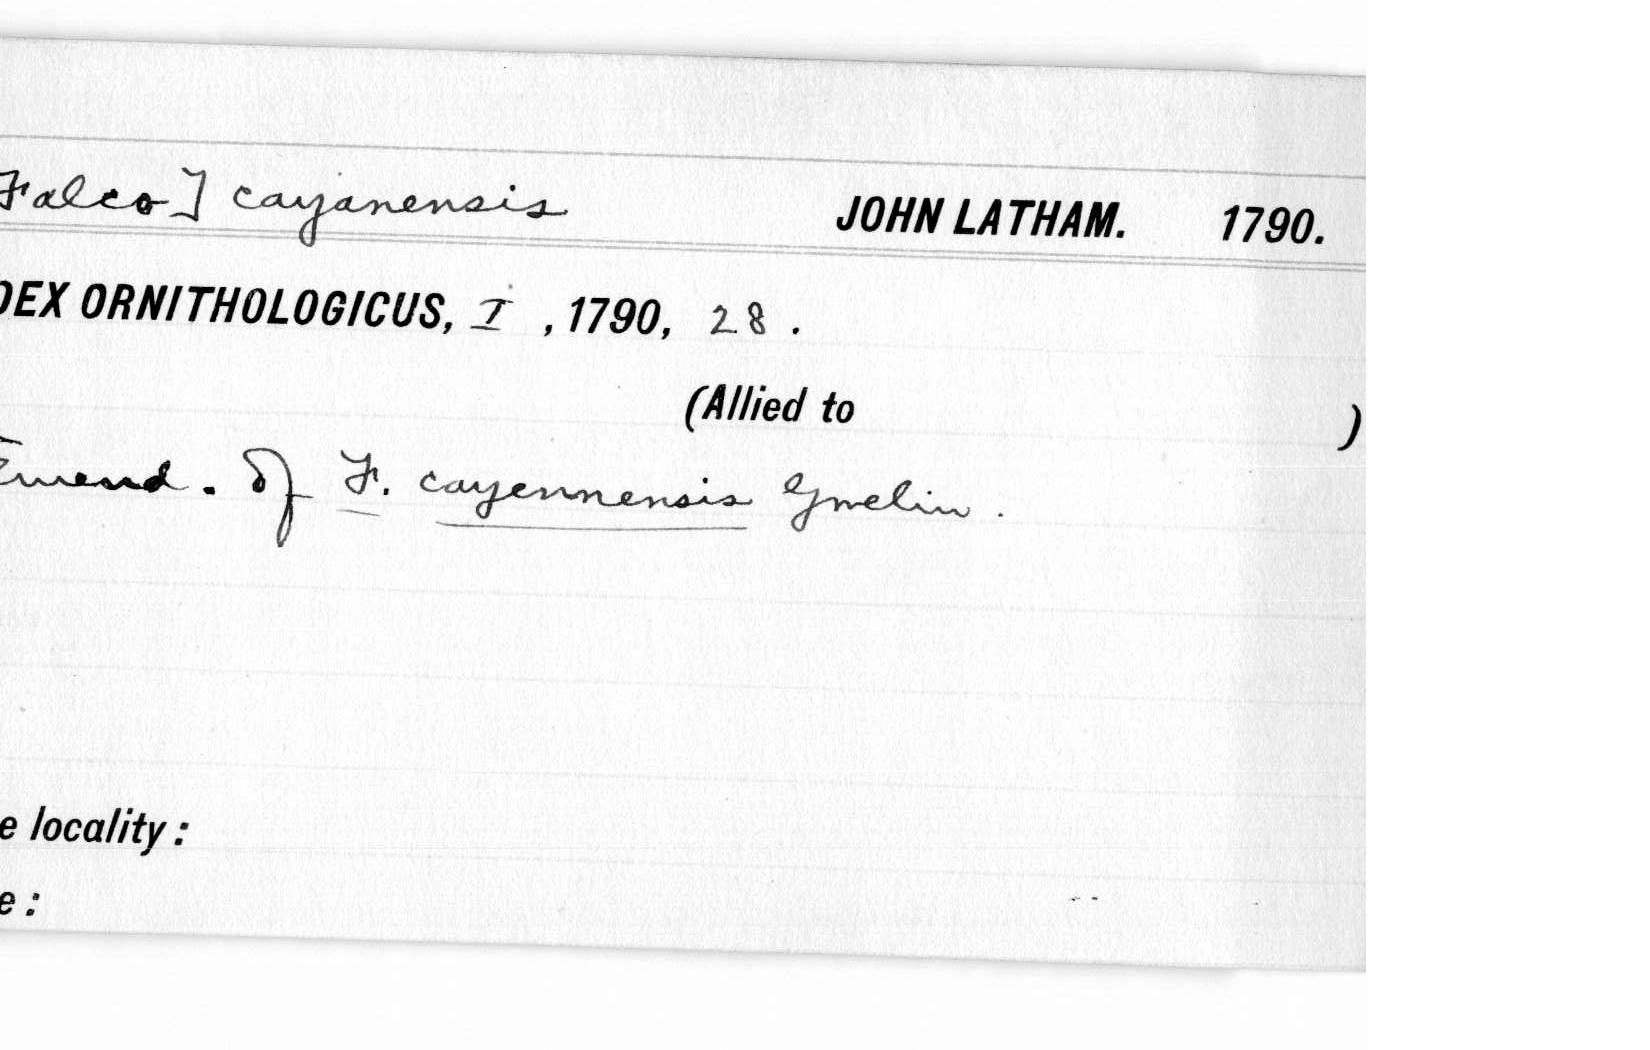 Falco] cayanensis JOHN LATHAM. 1790.
DEX ORNITHOLOGICUS, I , 1790, 28 .
(Allied to )
Emend. of F. cayennensis Gmelin.
e locality :
e :